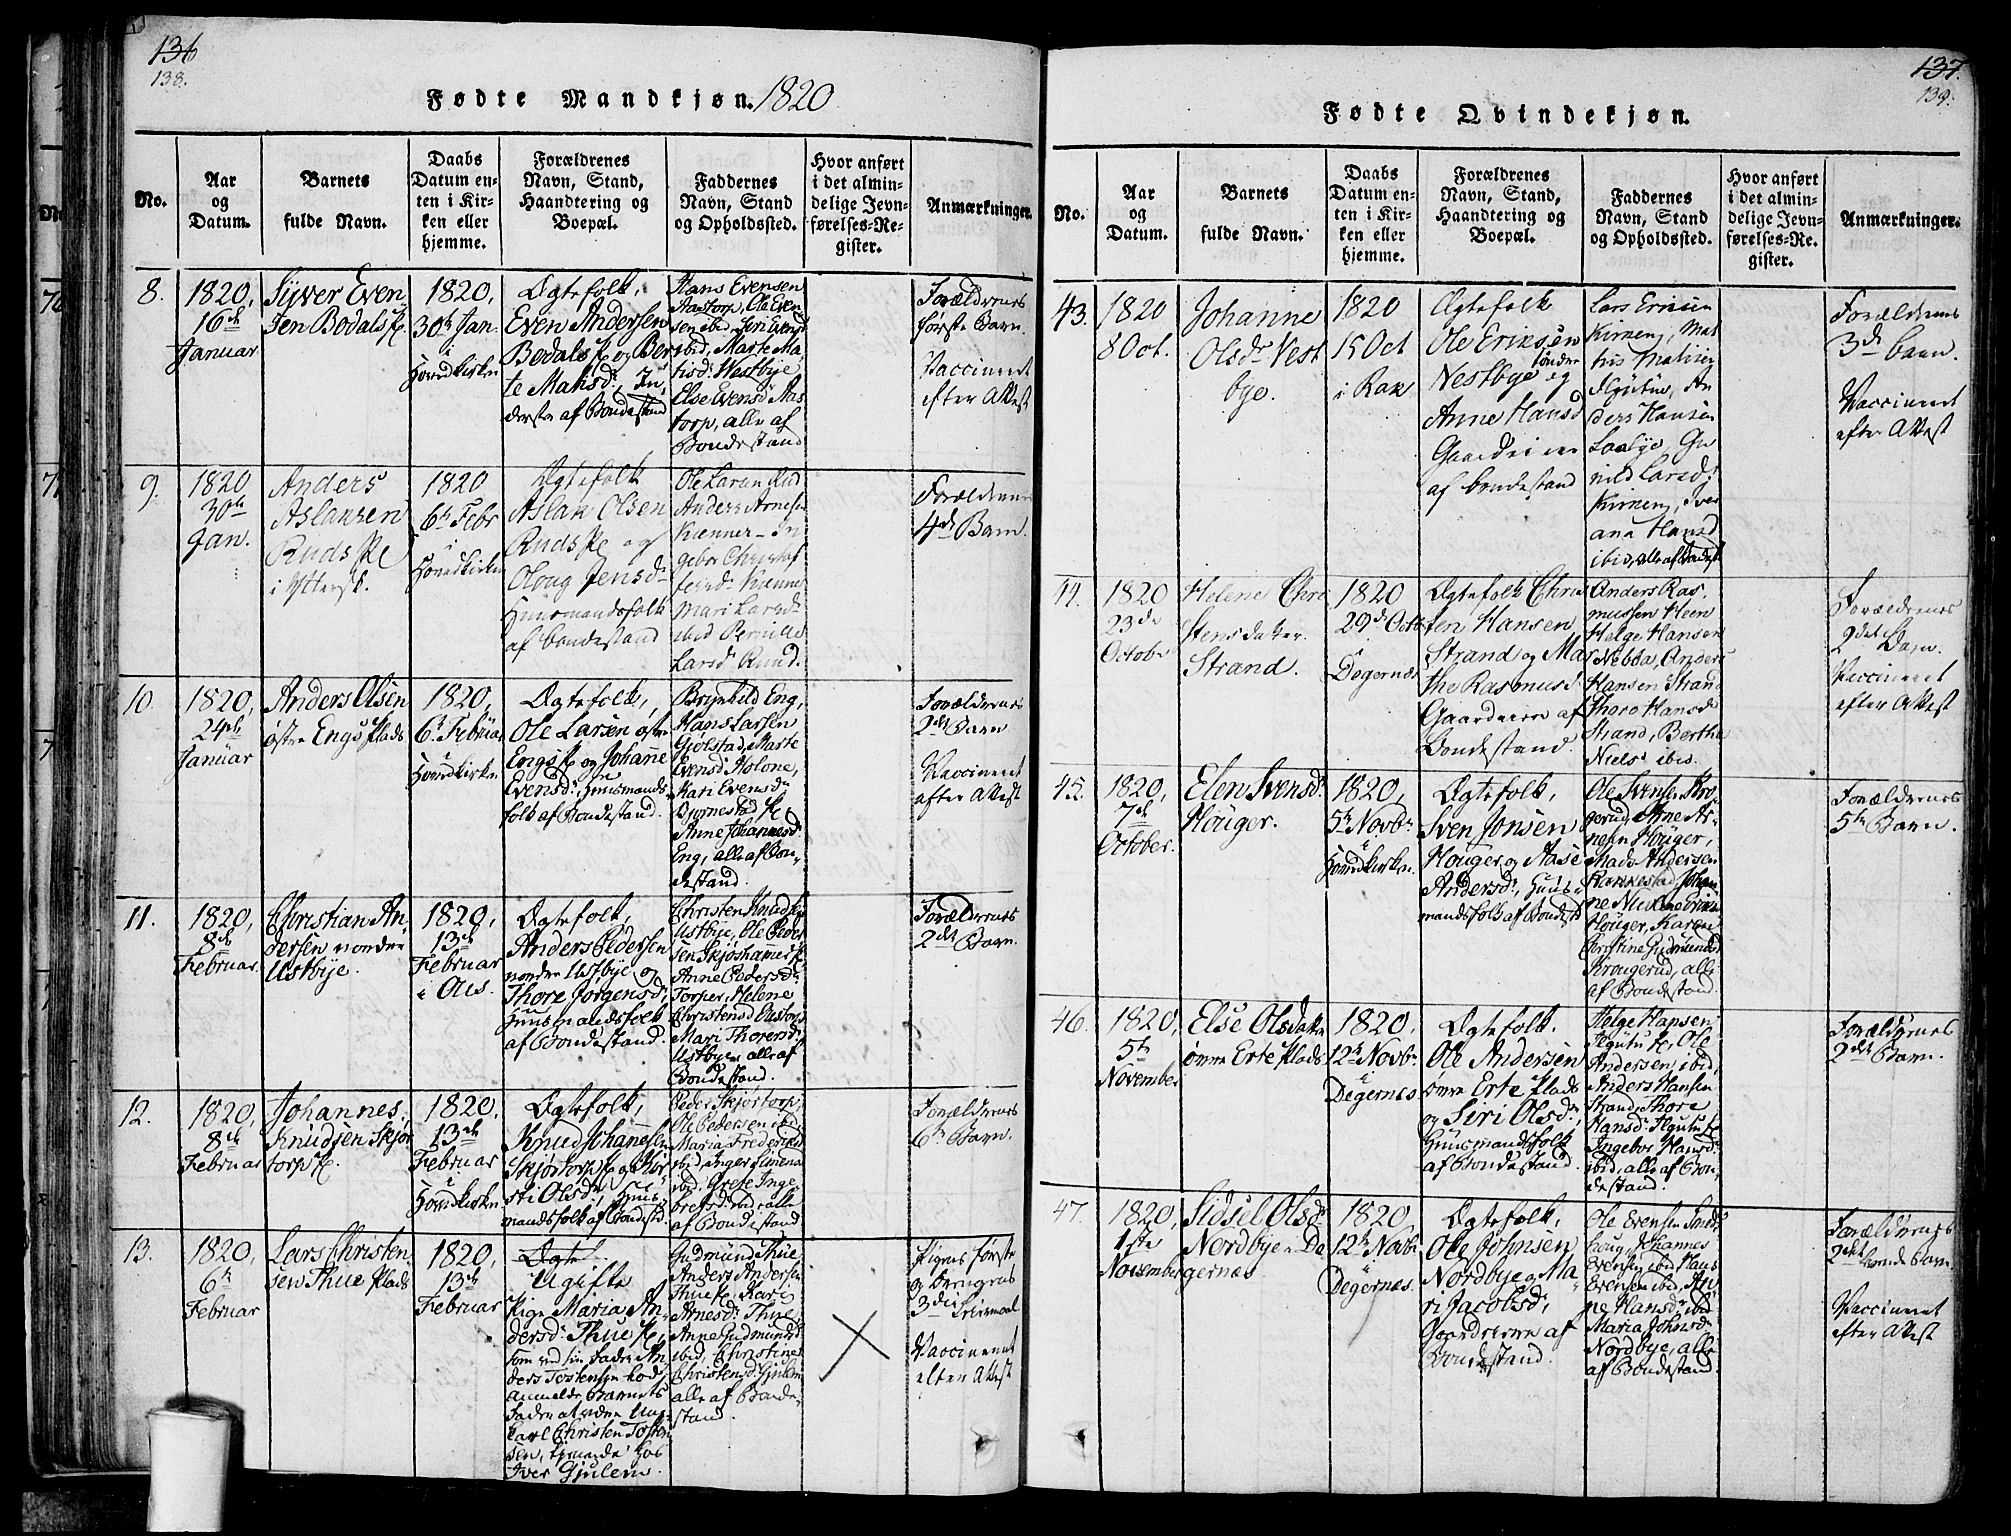 136
138.
Fødte Mandkjøn. 1820
No.
Aar
og
Datum.
Barnets
fulde Navn.
Daabs
Datum en-
ten i Kir-
ken eller
hjemme.
Forældrenes
Navn, Stand,
Haandtering og
Boepæl.
Faddernes
Navn, Stand
og Opholdssted.
Hvor anført
i det almin-
delige Jevn-
førelses-Re-
gister.
Anmærkninger.
8.
1820,
16de
Januar
Syver Even
sen Bødals
1820,
30te Jan.
i
Hovedkirken
Ægtefolk,
Even Andersen
og
af Bondestand
Hans Evensen
Aastorp, Ole Even
sen ibid,
ibid, Marte Ma
Westbye
Else Evensd Aas
torp, alle af
Bondestand
Forældrenes
første Barn.
Vaccineret
efter Attest
9.
1820
30te
Jan.
Anders
Aslaksen
Ruds
1820
6te Febr
i
Hovedkirken
Ægtefolk
Aslak Olsen
Ruds og
Jensd
Huusmandsfolk
af bondestand
Ole Larsen Rud
Anders Arnesen
Kienner
Mari Larsd
ibid Pernille
Larsd Ruud.
Forældrenes
4de Barn.
10.
1820,
24de
Januar
Anders Olsen
østre Engs Plads
1820,
6te Februar
i
Hovedkirken
Ægtefolk,
Ole Larsen østre
Engs og Johanne
Evensd, Huusmands
folk af Bondestand.
Brynhild Eng,
Hans Larsen
Gjølstad, Marte
Evensd
Kari Evensd
Bjørnestad
Anne Johannesd
Eng, alle af Bon,
destand.
Forældrenes
2det Barn
Vaccineret
efter Attest
11.
1820,
8de
Februar
Christian An
dersen nordre
Ustbye.
1820,
13de
Februar
i Ous.
Ægtefolk,
Anders Pedersen
nordre Ustbye og
Thore Jørgensd,
Huusmandsfolk
af Bondestand.
Christen Knudsen
Ustbye, Ole Peder
sen Skjøshammer
Anne Pedersd
Torper, Helene
Christensd
Mari Thoresd
Ustbye, alle af
Bondestand.
Forældrenes
2det Barn.
12.
1820,
8de
Februar
Johannes
Knudsen Skjør
torp
1820.
13de
Februar
i
Hovedkirken
Ægtefolk,
Knud Johanesen
Skjørtorp og Kir
sti Olsd, Huus
mandsfolk af Bondestd.
Peder Skjørtorp,
Ole Pedersen ibid,
Maria Frederiksd
ibid, Inger Simensd
ibid, Grete Inge
bretsd ibid, alle
af Bondestand
Forældrenes
6te Barn.
13.
1820,
6te
Februar
Lars Christen
sen Thue Plads
1820,
13de
Februar
Ægtef
Ugifte
Pige Maria An
dersd: Thue
som ved sin Fader An
ders Tostensen lod
anmelde Barnets
Fader at være Ung
karl Christen Tosten
sen, tjenende hos
Iver Gjulem.
Gudmund Thue
Anders Andersen
Thue, Kari
Arnesd: Thue,
Anne Gudmundsd
ibid, Christine
Christensd: Gjulem
alle af Bonde-
stand.
Pigens første
og
3die Leiermaal
Vaccineret
efter Attest
137.
139.
Fødte Qvindekjøn.
No.
Aar
og
Datum.
Barnets
fulde Navn.
Daabs
Datum en-
ten i Kir-
ken eller
hjemme.
Forældrenes
Navn, Stand,
Haandtering og
Boepæl.
Faddernes
Navn, Stand
og Opholdssted.
Hvor anført
i det almin-
delige Jevn-
førelses-Re-
gister.
Anmærkninger.
43.
1820
8 Oct.
Johanne
Olsdr Vest
bye.
1820
15 Oct
i Rak
Ægtefolk
Ole Eriksen
Vestbye søndre
og
Anne Hansd
Gaard
af bondestand
Lars Eriksen
Kirkeng, Mat
An
ders Hansen
Gu
nild Larsd:
Kirkeng,
Hansd
ibid, alle af Bondest
Forældrenes
3de barn.
Vaccineret
efter Attest
44.
1820
23de
October
Helene Chri
stensdatter
Strand.
1820
29de Octb
Degernæs
Ægtefolk Chris
ten Hansen
Strand og Mar
the Rasmusd:
Gaard af
Bondestand.
Anders Ras,
mussen Heen
Helge Hansen
Nebba, Anders
Hansen Strand
Thore Hansd
Strand, Berthe
Niels ibid.
Forældrenes
2det Barn.
Vaccineret
efter Attest
45.
1820,
7de
October.
Elen Svensd:
Houger.
1820,
5te Novbr
i
Hovedkirken.
Ægtefolk,
Sven Jonsen
Houger og Aase
Andersd:, Huus-
mandsfolk af Bondestd
Ole Svensen Kro
gerud, Arne Ar
nesen Houger,
Mads Andersen
Rakkestad, Johan
ne
Houger, Karen
Christine Gudmundsd
Krougerud, alle
af Bondestand.
Forældrenes
5te Barn.
46.
1820,
5te
November
Else Olsdatter
øvre Erte Plads
1820,
12te Novbr
i
Degernes.
Ægtefolk.
Ole Andersen
øvre Erte Plads
og Siri Olsd:
Huusmandsfolk
af Bondestand.
Helge Hansen
Ole
Andersen ibid,
Anders Hansen
Strand, Thore
Hansd:
Ingebor Hansd:
ibid, alle af Bon,
destand.
Forældrenes
2det Barn.
47.
1820,
1ste
November
Sidsel Olsd:
Nordbye i De
gernæs
1820,
12te Novbr
i
Degernæs.
Ægtefolk,
Ole Johnsen
Nordbye og Ma,
ri Jacobsd:,
af
Bondestand.
Ole Evensen
houg, Johannes
Evensen ibid Hans
Evensen ibid, An
ne Hansd: ibid
Maria Johnsd
Nordbye, alle
af Bondestand.
Forældrenes
2det
Barn.
Vaccineret
efter Attest